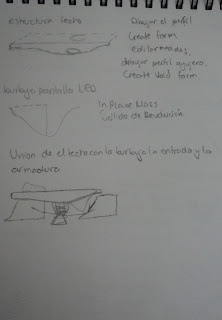 estructura techo
Dibujar el perfil
Create form
editar nodos,
dibujar perfil agujero.
Create void form
burbuja pantalla LED
In Place Mass
sólido de Revolución.
Union de el techo con la burbuja la entrada y la
armadura